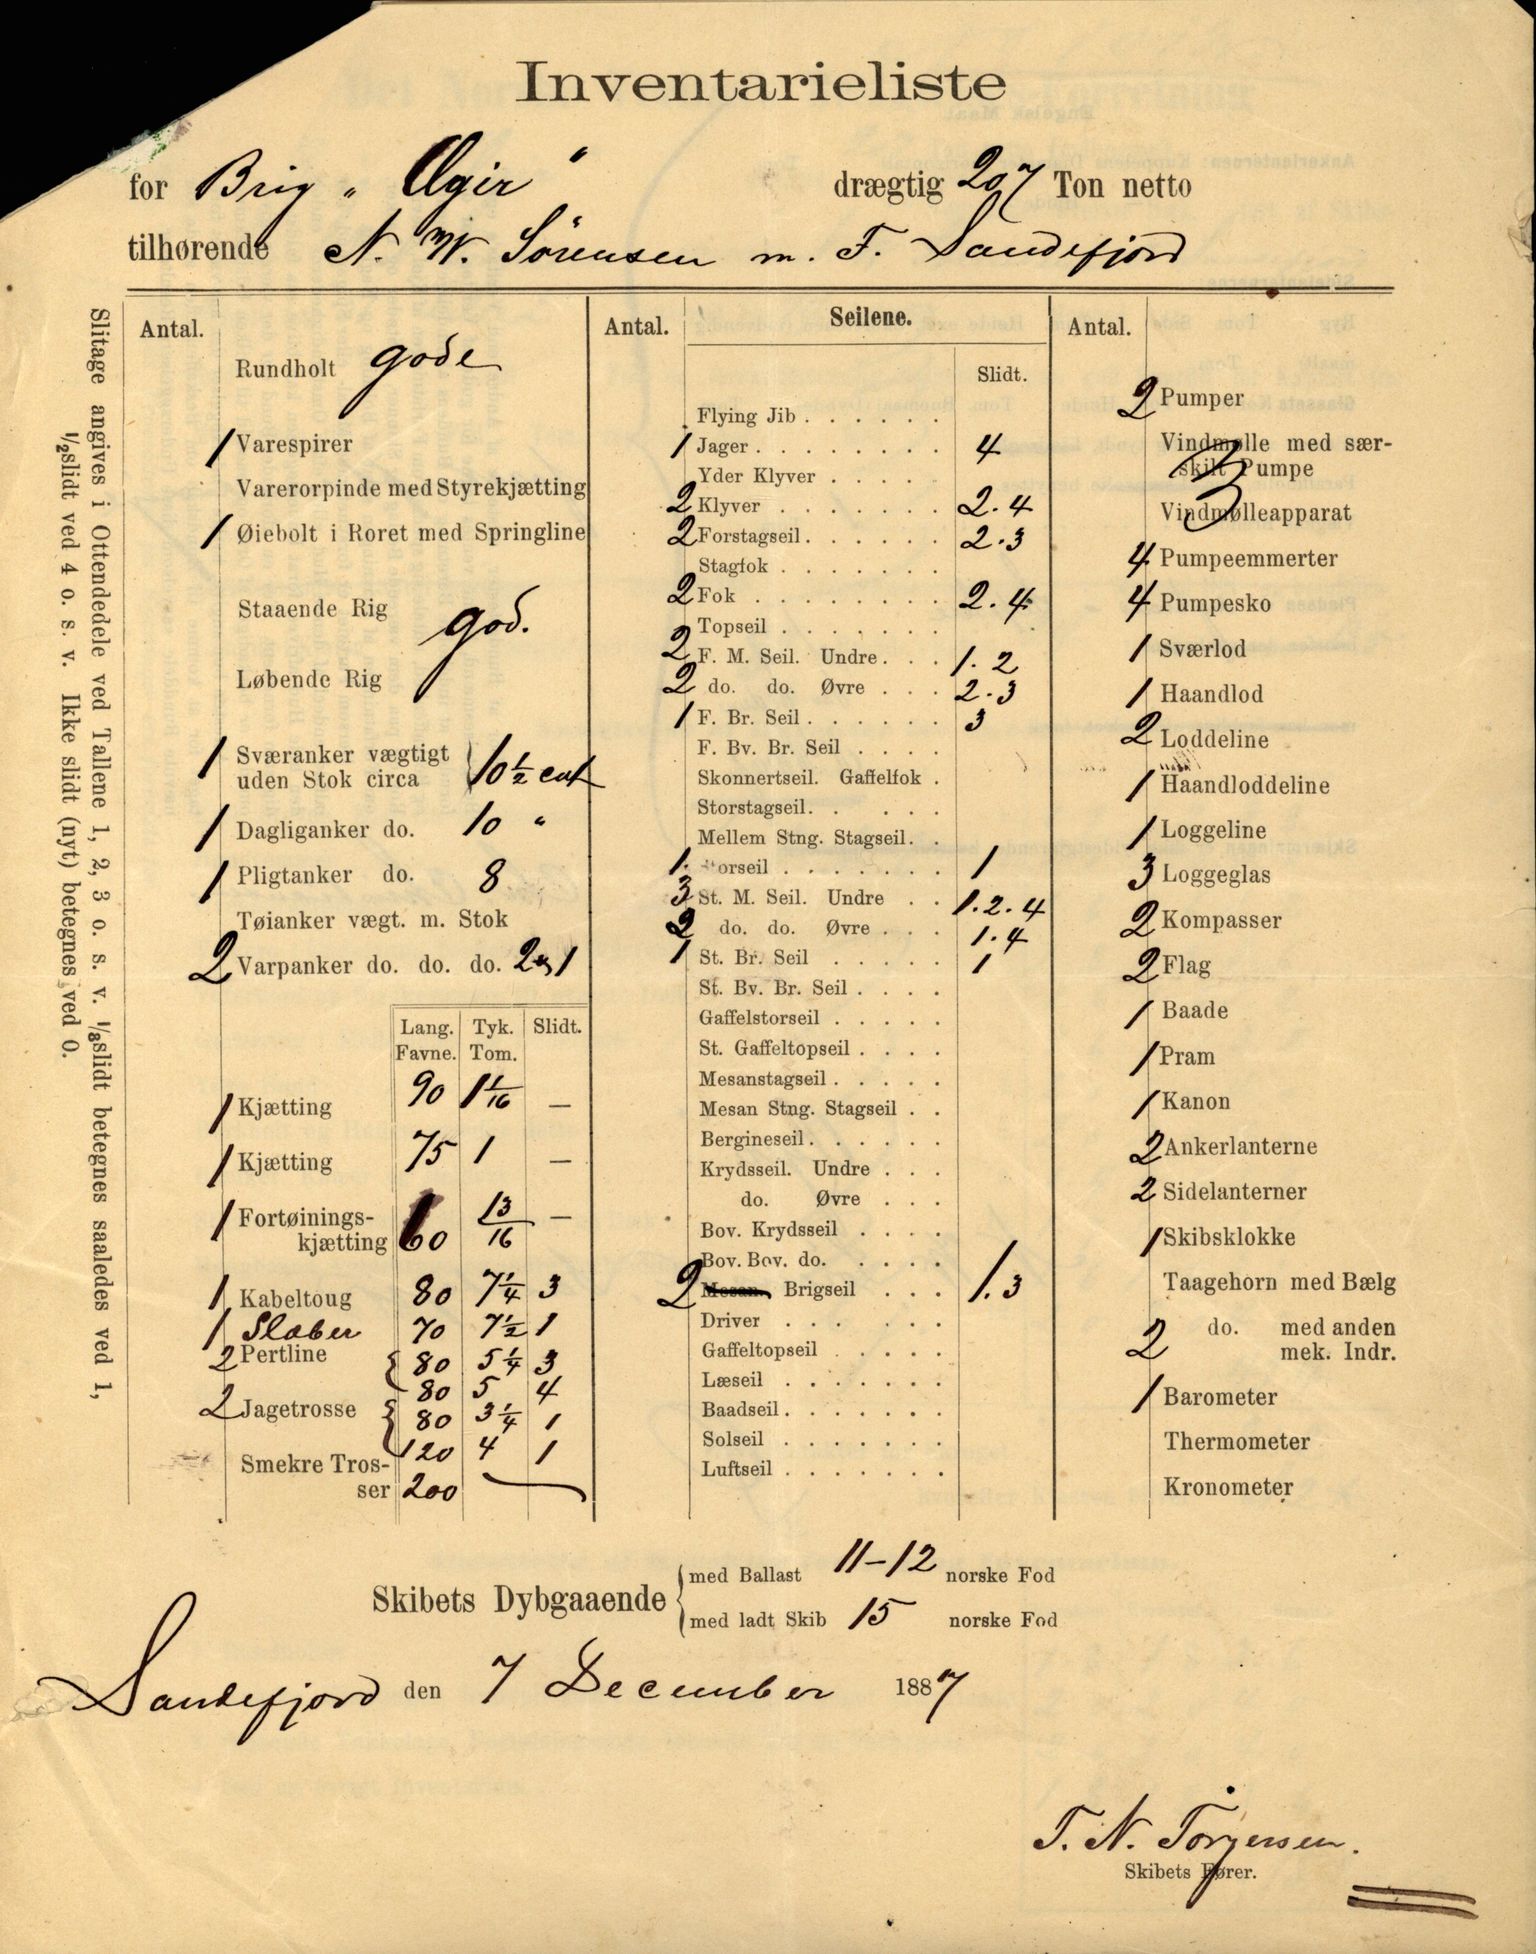 Inventarieliste
for Brig „Ægir" drægtig 207 Ton netto
tilhørende N. W. Sörensen m. F. Sandefjord
Slitage angives i Ottendedele ved Tallene 1, 2, 3 o. s. v. 1/8 slidt betegnes saaledes ved 1,
1/2 slidt ved 4 o. s. v. Ikke slidt (nyt) betegnes ved 0.
Antal.
Rundholt gode
1 Varespirer
Varerorpinde med Styrekjætting
1 Øiebolt i Roret med Springline
Staaende Rig god.
Løbende Rig
1 Sværanker vægtigt
uden Stok circa 10 1/2 cut
1 Dagliganker do. 10 "
1 Pligtanker do. 8
Tøianker vægt. m. Stok
2 Varpanker do. do. do. 2 og 1
Lang. Tyk. Slidt.
Favne. Tom.
1 Kjætting 90 1 1/16 —
1 Kjætting 75 1 —
1 Fortøinings-
kjætting 60 13/16 —
1 Kabeltoug 80 7 1/4 3
1 Slæber 70 7 1/2 1
2 Pertline 80 5 1/4 3
80 5 4
2 Jagetrosse 80 3 1/4 1
120 4 1
Smekre Tros-
ser 200
Antal. Seilene.
Slidt.
Flying Jib
1 Jager 4
Yder Klyver
2 Klyver 2.4
2 Forstagseil 2.3
Stagfok
2 Fok 2.4
Topseil
2 F. M. Seil. Undre 1.2
2 do. do. Øvre 2.3
1 F. Br. Seil 3
F. Bv. Br. Seil
Skonnertseil. Gaffelfok
Storstagseil
Mellem Stng. Stagseil
1. Storseil 1
3 St. M. Seil. Undre 1.2.4
2 do. do. Øvre 1.4
1 St. Br. Seil 1
St. Bv. Br. Seil
Gaffelstorseil
St. Gaffeltopseil
Mesanstagseil
Mesan Stng. Stagseil
Bergineseil
Krydsseil. Undre
do. Øvre
Bov. Krydsseil
Bov. Bov. do.
2 Mesan. Brigseil 1.3
Driver
Gaffeltopseil
Læseil
Baadseil
Solseil
Luftseil
Antal.
2 Pumper
Vindmølle med sær-
skilt Pumpe
3
Vindmølleapparat
4 Pumpeemmerter
4 Pumpesko
1 Sværlod
1 Haandlod
2 Loddeline
1 Haandloddeline
1 Loggeline
3 Loggeglas
2 Kompasser
2 Flag
1 Baade
1 Pram
1 Kanon
2 Ankerlanterne
2 Sidelanterner
1 Skibsklokke
Taagehorn med Bælg
2 do. med anden
mek. Indr.
1 Barometer
Thermometer
Kronometer
Skibets Dybgaaende
med Ballast 11-12 norske Fod
med ladt Skib 15 norske Fod
Sandefjord den 7 December 1887
T. N. Torgersen.
Skibets Fører.